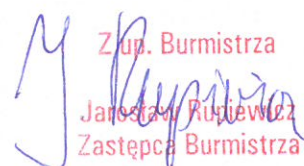 Z up. Burmistrza
Jarosław Rupiewicz
Zastępca Burmistrza